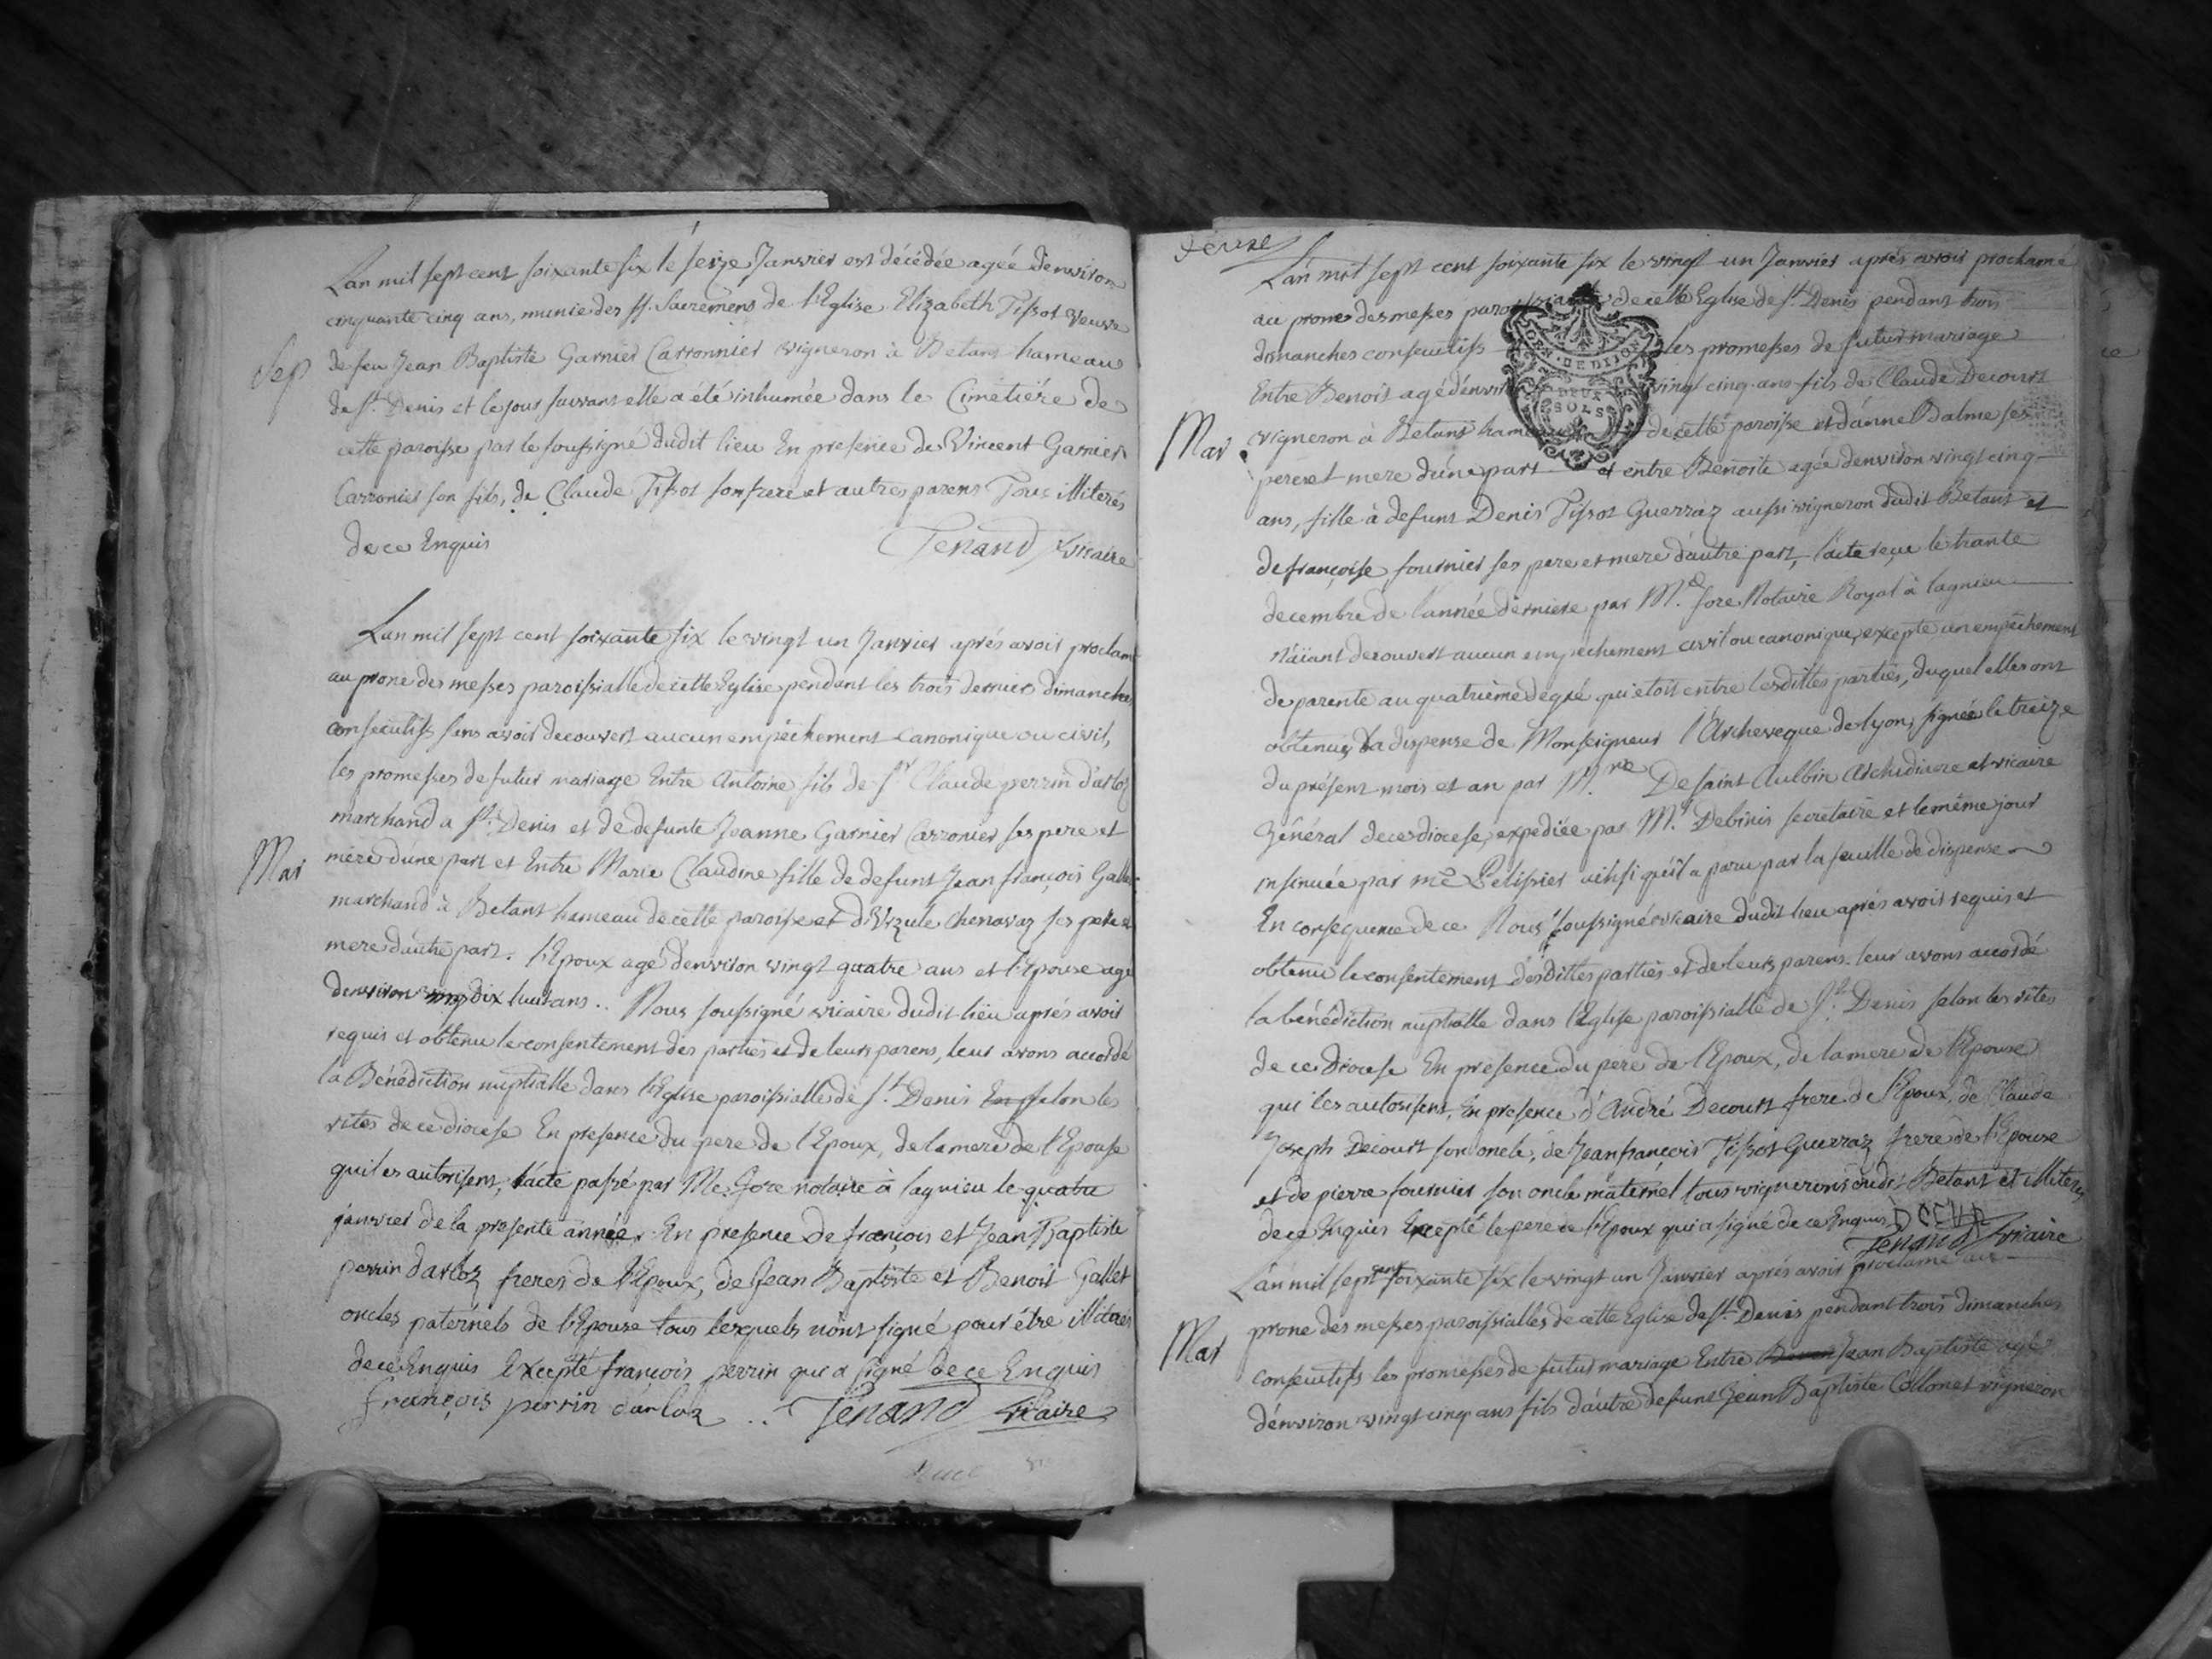 Lan mil sept cent soixante six le seize Janvier est décédée agée denviron
cinquante cinq ans, munie des SS. Sacremens de l'Eglise Elizabeth Tissot veuve
Sep
de feu Jean Baptiste Garnier Carronnier vigneron à Betans hameau
de St. Denis et le jour suivant elle a été inhumée dans le Cimetiére de
cette paroisse par le soussigné dudit lieu En presence de Vincent Garnier
Carronier son fils, de Claude Tissot son frere et autres parens Tous illiterés
de ce Enquis
Tenand vicaire
Lan mil sept cent soixante six le vingt un Janvier aprés avoir proclamé
au prone des messes paroissialle de cette Eglise pendant les trois dernier dimanche
consecutifs sans avoir decouvert aucun empêchement canonique ou civil,
les promesses de futur mariage Entre Antoine fils de Sr Claude perrin d'arloz
marchand a St. Denis et de defunte Jeanne Garnier Carronier ses pere et
Mar
mere d'une part et Entre Marie Claudine fille de defunt Jean françois Gallet
marchand à Betans hameau de cette paroisse et d'Urzule Chenavaz ses pere et
mere d'autre part. l'Epoux agé d'environ vingt quatre ans et l'Epouse agé
denviron dix huit ans.. Nous soussigné vicaire dudit lieu aprés avoir
requis et obtenu le consentement des parties et de leurs parens, leur avons accordé
la Bénédiction nuptialle dans l'Eglise paroissialle de St. Denis selon les
rites de ce diocese En presence du pere de l'Epoux, de la mere de l'Epouse
qui les autorisent, l'acte passé par Me. Jore notaire à lagnieu le quatre
janvier de la presente année. En presence de françois et Jean Baptiste
perrin darloz freres de l'Epoux, de Jean Baptiste et Benoit Gallet
oncles paternels de l'Epouse tous lesquels n'ont signé pour étre illiterés
de ce Enquis Excepté françois perrin qui a signé de ce Enquis
françois perrin darloz .. Tenand vicaire
Lan mil sept cent soixante six le vingt un Janvier aprés avoir proclamé
au prone des messes paroissialle de cette Eglise de St. Denis pendant trois
dimanches consecutifs les promesses de futur mariage
GEN. DE DIJON
DEUX
SOLS
Entre Benoit agé d'environ vingt cinq ans fils de Claude Decourt
Mar.
vigneron à Betans hameau de cette paroisse et d'anne Balme ses
pere et mere d'une part et entre Benoite agée denviron vingt cinq
ans, fille à defunt Denis Tissot Guerraz aussi vigneron dudit Betans et
de françoise fournier ses pere et mere d'autre part, l'acte reçue le trante
decembre de l'année derniere par Me. Jore Notaire Royal à lagnieu
n'aiant decouvert aucun empêchement civil ou canonique, excepte un empêchement
de parente au quatrième degré qui étoit entre lesdittes parties, duquel elles ont
obtenues la dispense de Monseigneur l'Archeveque de Lyon, signée le treize
du présent mois et an par M.re De saint Aulbin Archidiacre et vicaire
Général de ce diocese, expediée par Mr. Debinis secretaire et le même jour
insinuée par me Pelissier ainsi qu'il a paru par la feuille de dispense
En consequence de ce Nous soussigné vicaire dudit lieu aprés avoir requis et
obtenu le consentement desdittes parties et de leurs parens. leur avons accordé
la bénédiction nuptialle dans l'Eglise paroissialle de St. Denis selon les rites
de ce diocese En presence du pere de l'Epoux, de la mere de l'Epouse
qui les autorisent, En presence d'André Decourt frere de l'Epoux, de Claude
Joseph Decourt son oncle, de Jean françois Tissot Guerraz frere de l'Epouse
et de pierre fournier son oncle maternel tous vignerons dudit Betans et illiterés
de ce Enquis Excepté le pere de l'Epoux qui a signé de ce Enquis
Tenand vicaire
Lan mil sept cent soixante six le vingt un Janvier aprés avoir proclamé au
prone des messes paroissialles de cette Eglise de St. Denis pendant trois dimanches
Mar
consecutifs les promesses de futur mariage Entre Jean Baptiste agé
d'environ vingt cinq ans fils d'autre defunt Jean Baptiste Collonet vigneron